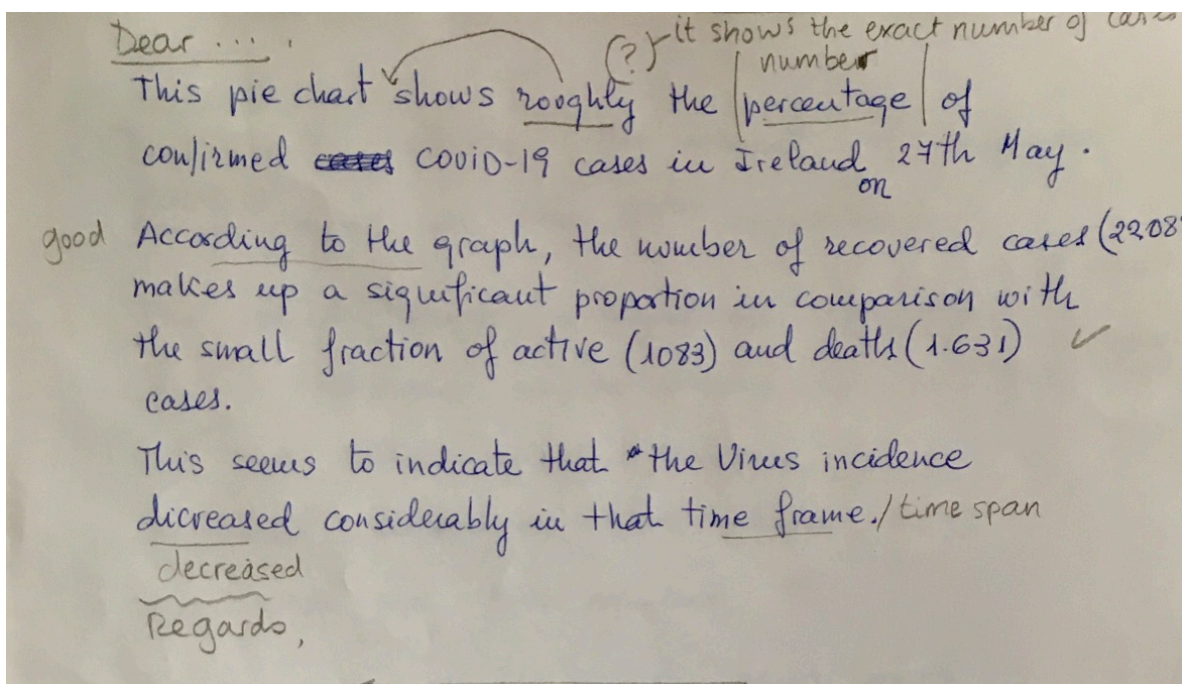 Dear ....
(?) it shows the exact number of cases
number
This pie chart shows roughly the percentage of
confirmed cases COVID-19 cases in Ireland 27th May.
on
good According to the graph, the number of recovered cases (22,08
makes up a significant proportion in comparison with
the small fraction of active (1083) and deaths (1.631)
cases.
This seems to indicate that the Virus incidence
dicreased considerably in that time frame./time span
decreased
Regards,